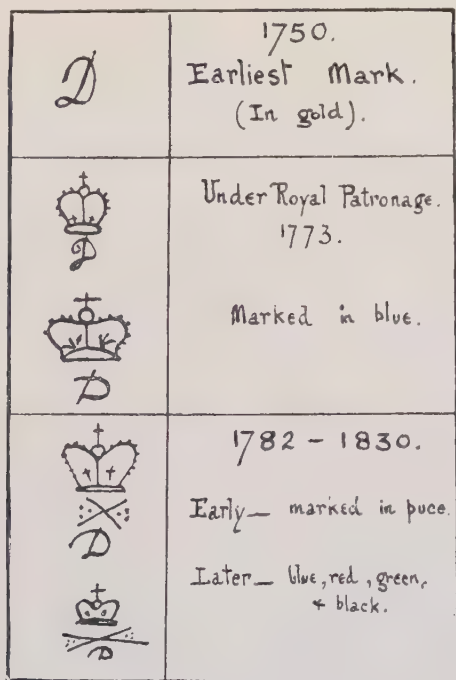 D
1750.
Earliest Mark.
(In gold).
D
Under Royal Patronage.
1773.
D
Marked in blue.
D
1782 - 1830.
Early— marked in puce.
D
Later— blue, red, green,
+ black.